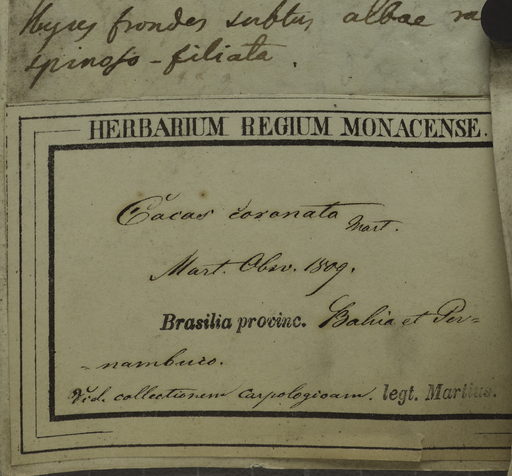 frondes subtus albae
spinoso-filiata.
HERBARIUM REGIUM MONACENSE.
Cocos coronata Mart.
Mart. Obsv. 1809.
Brasilia provinc. Bahia et Per-
-nambuco.
Vid. collectionem carpologicam. legt. Martius.